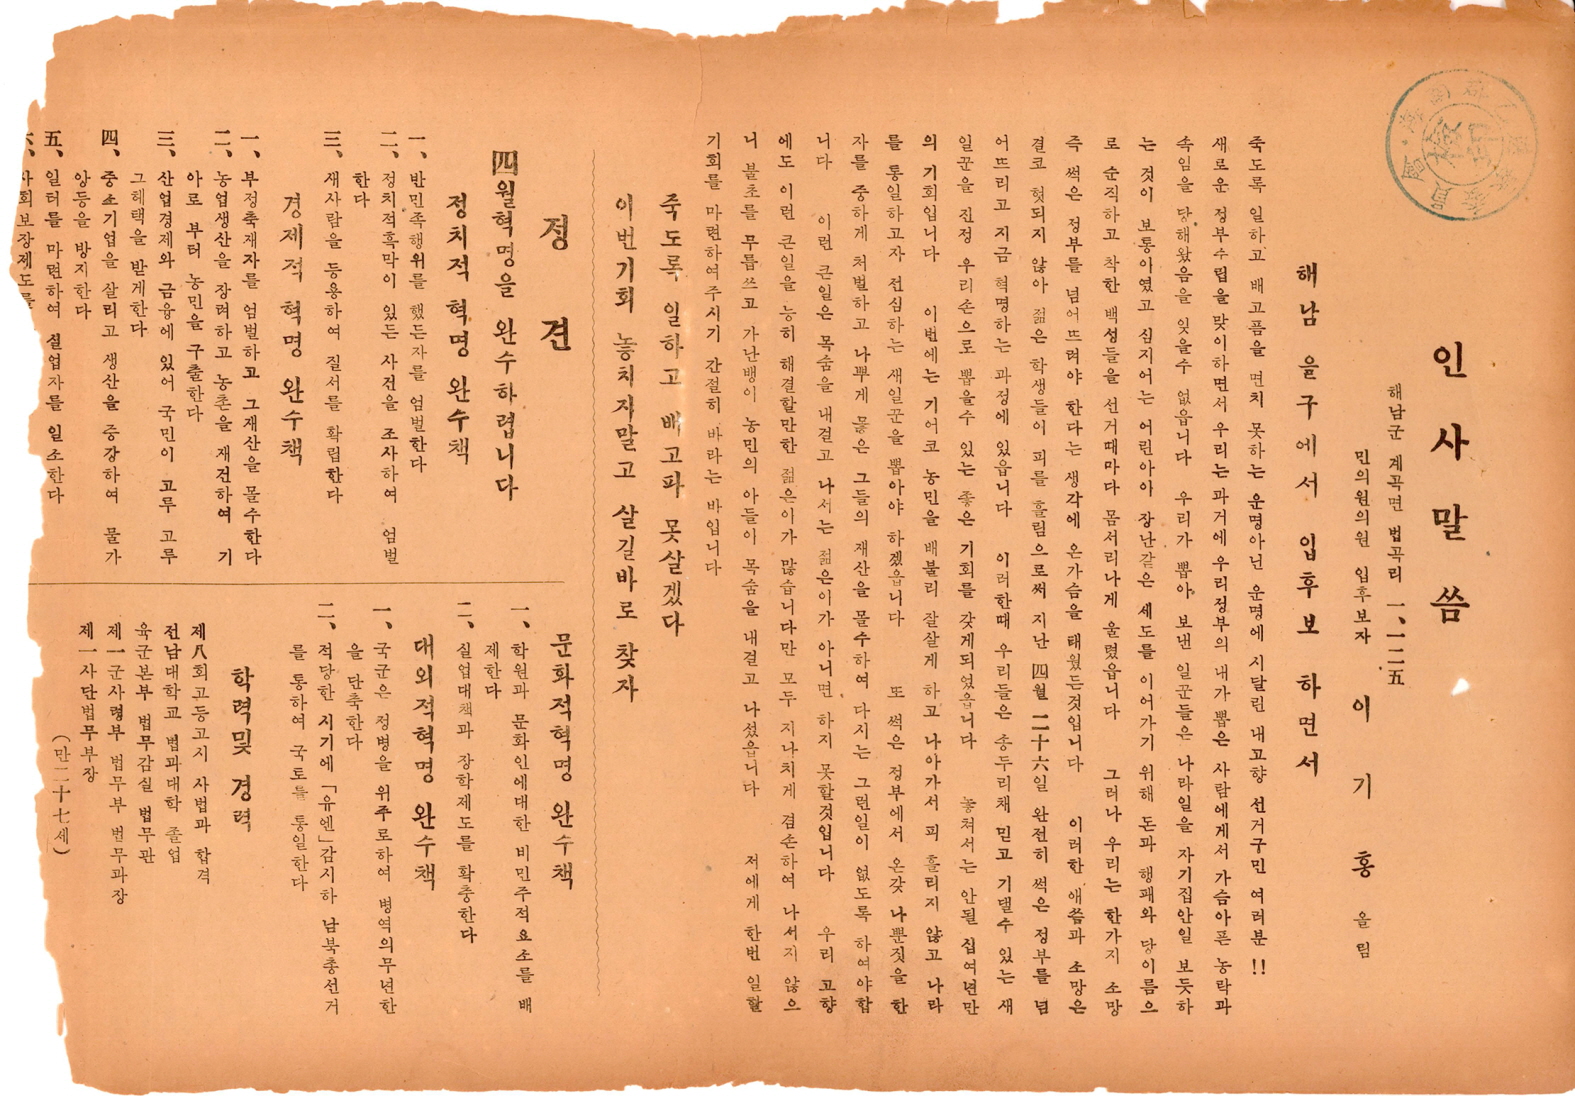 인사말씀
해남군 계곡면 법곡리 一、一二五
민의원의원 입후보자 이기홍 올림
해남 을구에서 입후보 하면서
죽도록 일하고 배고픔을 면치 못하는 운명아닌 운명에 시달린 내고향 선거구민 여러분!!
새로운 정부수립을 맞이하면서 우리는 과거에 우리정부의 내가 뽑은 사람에게서 가슴아픈 농락과
속임을 당해왔음을 잊을수 없읍니다 우리가 뽑아 보낸 일꾼들은 나라일을 자기집안일 보듯하
는 것이 보통아였고 심지어는 어린아아 장난같은 세도를 이어가기 위해 돈과 행패와 당이름으
로 순직하고 착한 백성들을 선거때마다 몸서리나게 울렸읍니다 그러나 우리는 한가지 소망
즉 썩은 정부를 넘어뜨려야 한다는 생각에 온가슴을 태웠든것입니다 이러한 애씀과 소망은
결코 헛되지 않아 젊은 학생들이 피를 흘림으로써 지난 四월 二十六일 완전히 썩은 정부를 넘
어뜨리고 지금 혁명하는 과정에 있읍니다 이러한때 우리들은 송두리채 믿고 기댈수 있는 새
일꾼을 진정 우리손으로 뽑을수 있는 좋은 기회를 갖게되였읍니다 놓쳐서는 안될 십여년만
의 기회입니다 이번에는 기어코 농민을 배불리 잘살게 하고 나아가서 피 흘리지 않고 나라
를 통일하고자 전심하는 새일꾼을 뽑아야 하겠읍니다 또 썩은 정부에서 온갖 나뿐짓을 한
자를 중하게 처벌하고 나뿌게 뫃은 그들의 재산을 몰수하여 다시는 그런일이 없도록 하여야합
니다 이런 큰일은 목숨을 내걸고 나서는 젊은이가 아니면 하지 못할것입니다 우리 고향
에도 이런 큰일을 능히 해결할만한 젊은이가 많습니다만 모두 지나치게 겸손하여 나서지 않으
니 불초를 무릅쓰고 가난뱅이 농민의 아들이 목숨을 내걸고 나섰읍니다 저에게 한번 일할
기회를 마련하여주시기 간절히 바라는 바입니다
죽도록 일하고 배고파 못살겠다
이번기회 놓치지말고 살길바로 찾자
정견
四월혁명을 완수하렵니다
정치적 혁명 완수책
一、반민족행위를 했든자를 엄벌한다
二、정치적흑막이 있든 사전을 조사하여 엄벌
한다
三、새사람을 등용하여 질서를 확립한다
경제적 혁명 완수책
一、부정축재자를 엄벌하고 그재산을 몰수한다
二、농업생산을 장려하고 농촌을 재건하여 기
아로 부터 농민을 구출한다
三、산업경제와 금융에 있어 국민이 고루 고루
그혜택을 받게한다
四、중소기업을 살리고 생산을 증강하여 물가
앙등을 방지한다
五、일터를 마련하여 실업자를 일소한다
六、사회보장제도를
문화적혁명 완수책
一、학원과 문화인에대한 비민주적요소를 배
제한다
二、실업대책과 장학제도를 확충한다
대외적혁명 완수책
一、국군은 정병을 위주로하여 병역의무년한
을 단축한다
二、적당한 시기에 「유엔」감시하 남북총선거
를 통하여 국토를 통일한다
학력및 경력
제八회고등고시 사법과 합격
전남대학교 법과대학 졸업
육군본부 법무감실 법무관
제一군사령부 법무부 법무과장
제一사단법무부장
(만二十七세)